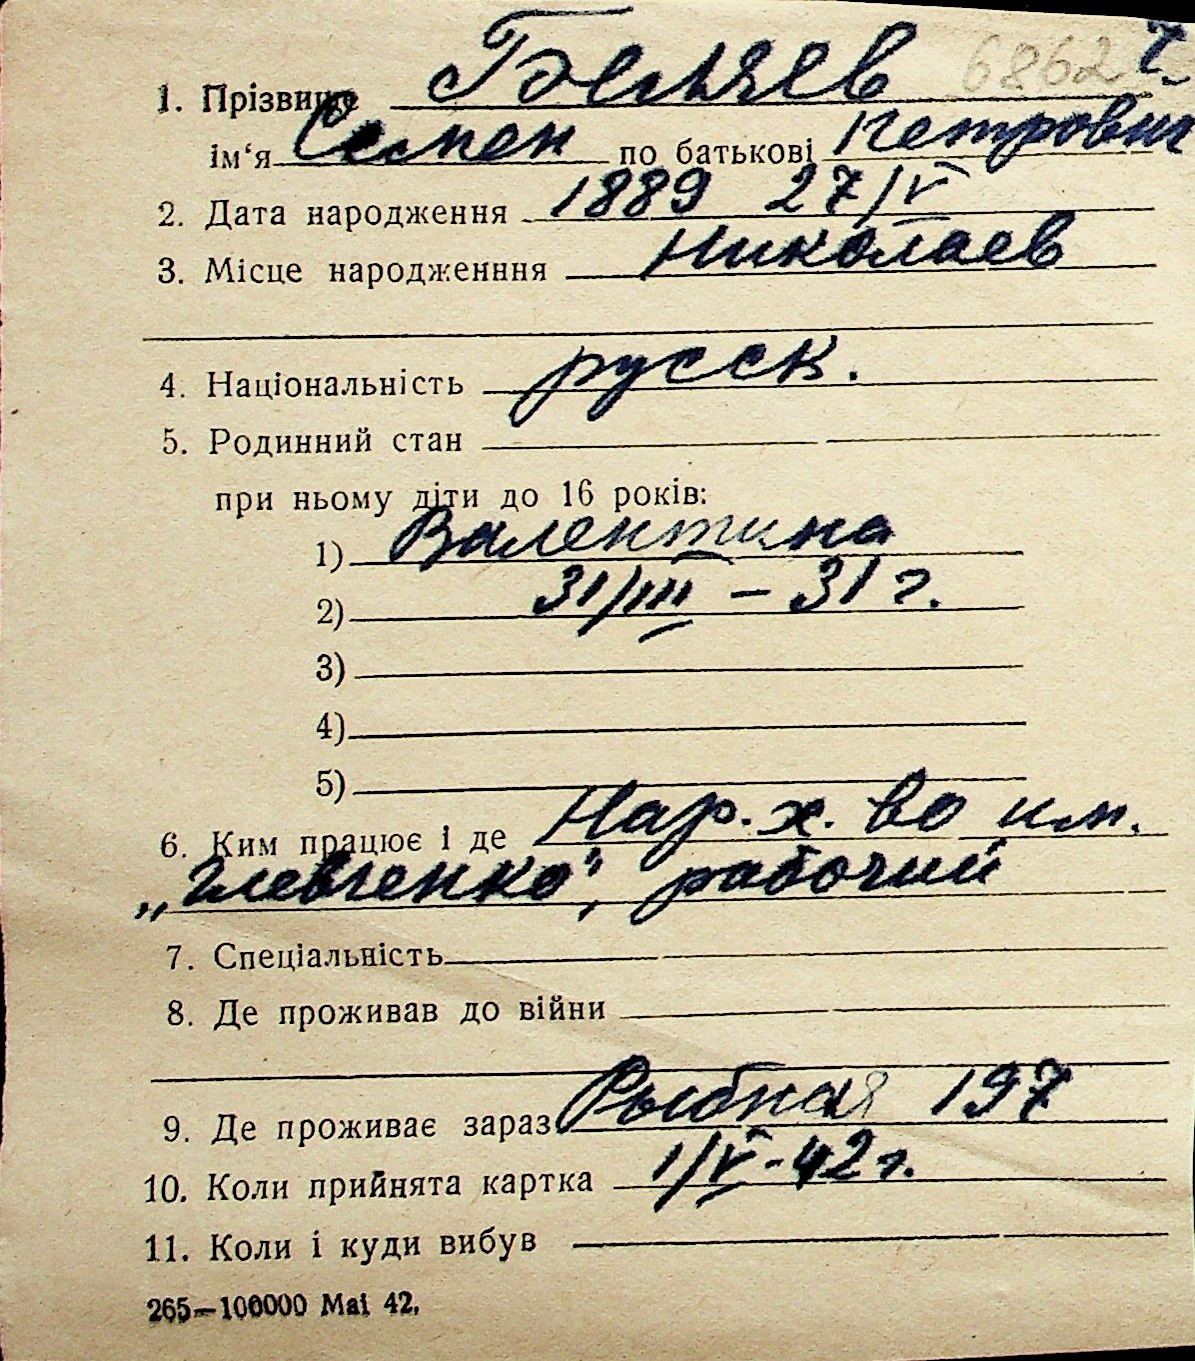 1. Прізвище Беляев 6862 7.
ім‘я Семен по батькові Петрович
2. Дата народження 1889 27/V
3. Місце народженння Николаев
4. Національність русск.
5. Родинний стан
при ньому діти до 16 років:
1) Валентина
2) 31/III – 31 г.
3)
4)
5)
6. Ким працює і де Нар. х. во им.
„Шевченко", рабочий
7. Спеціальність
8. Де проживав до війни
9. Де проживає зараз Рыбная 197
10. Коли прийнята картка 1/V-42 г.
11. Коли і куди вибув
265—100000 Mai 42.